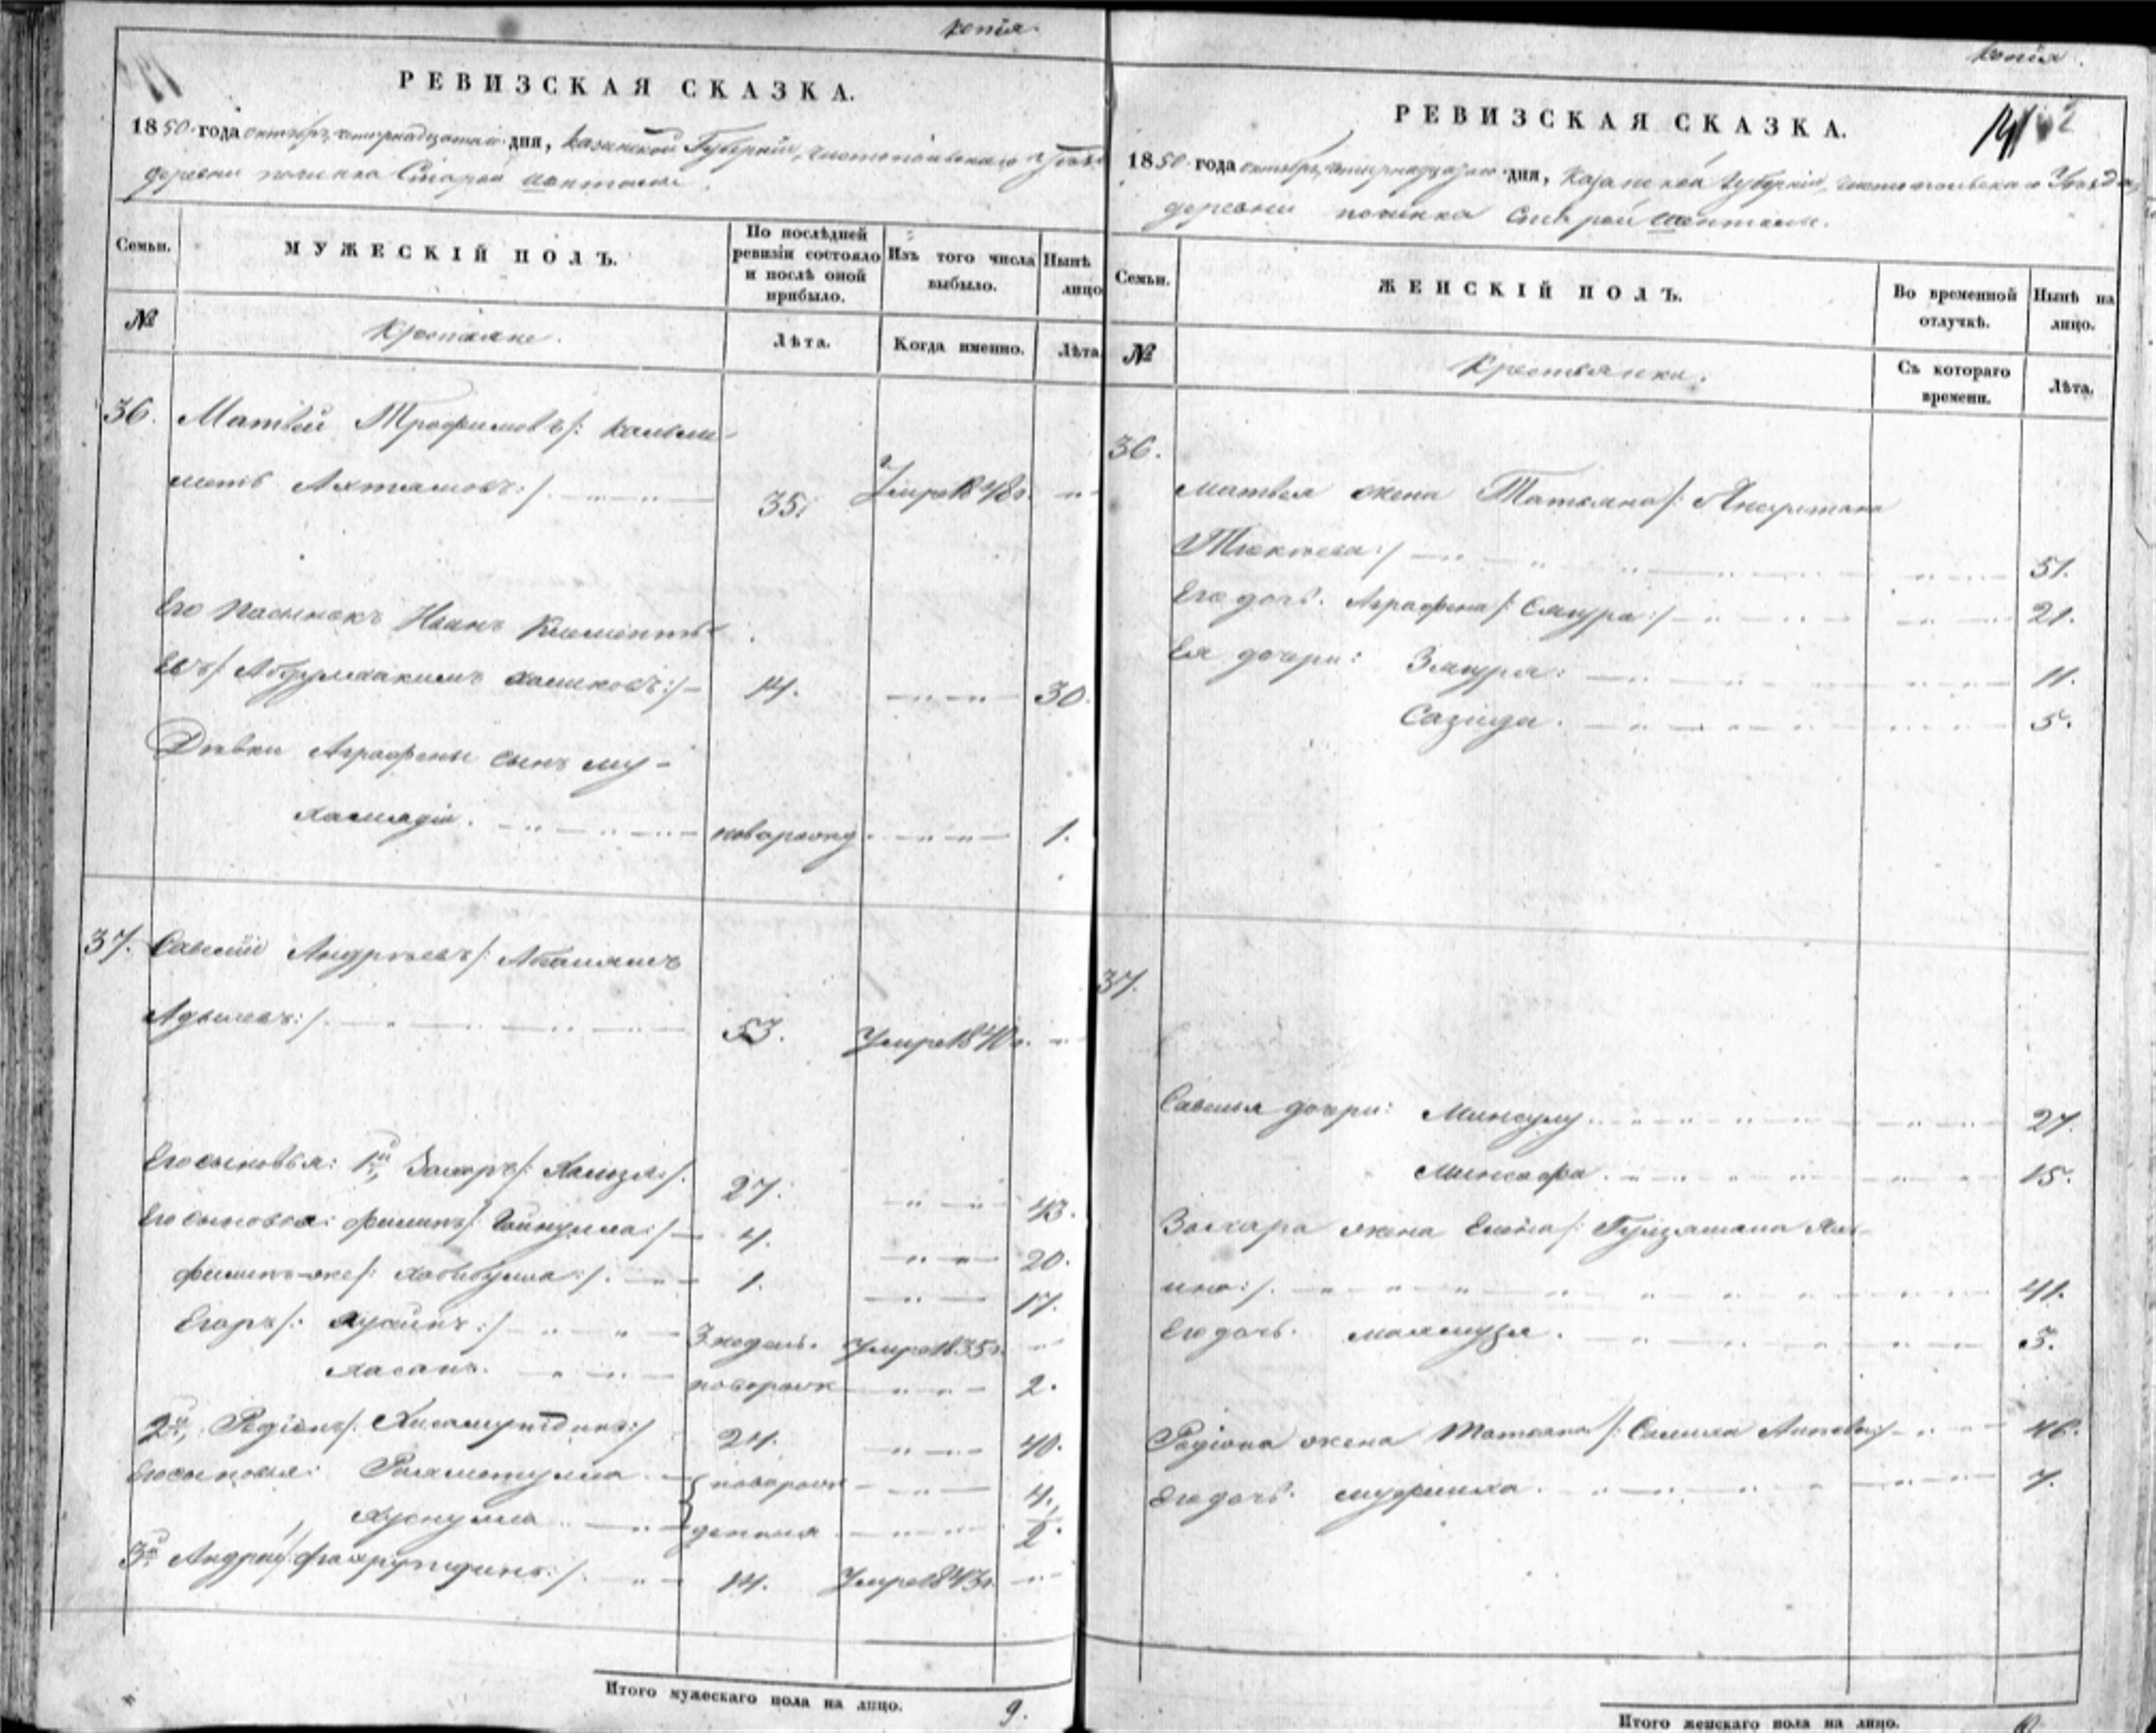 копія.
РЕВИЗСКАЯ СКАЗКА.
1850 года октября четырнадцатаго дня, Казанской Губерніи, Чистопольскаго Уѣзда
деревни починка Старой
Семьи.
МУЖЕСКІЙ ПОЛЪ.
По послѣдней ревизіи состояло и послѣ оной прибыло.
Изъ того числа выбыло.
Нынѣ лицо
№
Крестьяне.
Лѣта.
Когда именно.
Лѣта
36. Матвей Трофимовъ /:
Ахтямовъ:/ 35. Умре 1848 г.
Его пасынокъ Иванъ Клементь-
евъ /: Абдулхакимъ Халиковъ:/ 14. 30.
Дѣвки Аграфены сынъ Му-
хамядій. новорожд. 1.
37. Савелій Андреевъ /:
Адыевъ:/ 53. Умре 1840 г.
Его сыновья: 1й, Захаръ /: Хамзя:/ 27. 43.
Его сыновья: Филипъ /: Гайнулла:/ 4. 20.
Филипъ-же /: Хабибулла:/ 1. 17.
Егоръ /: Хусаинъ:/ 3 недель. Умре 1835 г.
Хасанъ. новорожд 2.
2й, Родіонъ /: Хисамутдинъ:/ 24. 40.
Его сыновья: Рахметулла новорожд 4.
Хуснулла 2.
3й Андрей /: Фахрутдинъ:/ 14. Умре 1843 г.
Итого мужескаго пола на лицо. 9.
копія.
РЕВИЗСКАЯ СКАЗКА.
1850 года октября четырнадцатаго дня, Казанской Губерніи, Чистопольскаго Уѣзда,
деревни починка Старой
Семьи.
ЖЕНСКІЙ ПОЛЪ.
Во временной отлучкѣ.
Нынѣ на лицо.
№
Крестьянки.
Съ котораго времени.
Лѣта.
36.
Матвея жена Татьяна /:
51.
Его дочь Аграфена /: Сагура:/ 21.
Ея дочери: Загура: 11.
Сазида. 5.
37.
Савелья дочери: Минсулу 27.
Минсафа 15.
Захара жена Елена /:
41.
Его дочь. Махмузя. 3.
Родіона жена Матвеева /: Салиха 46.
Его дочь. 7.
Итого женскаго пола на лицо.